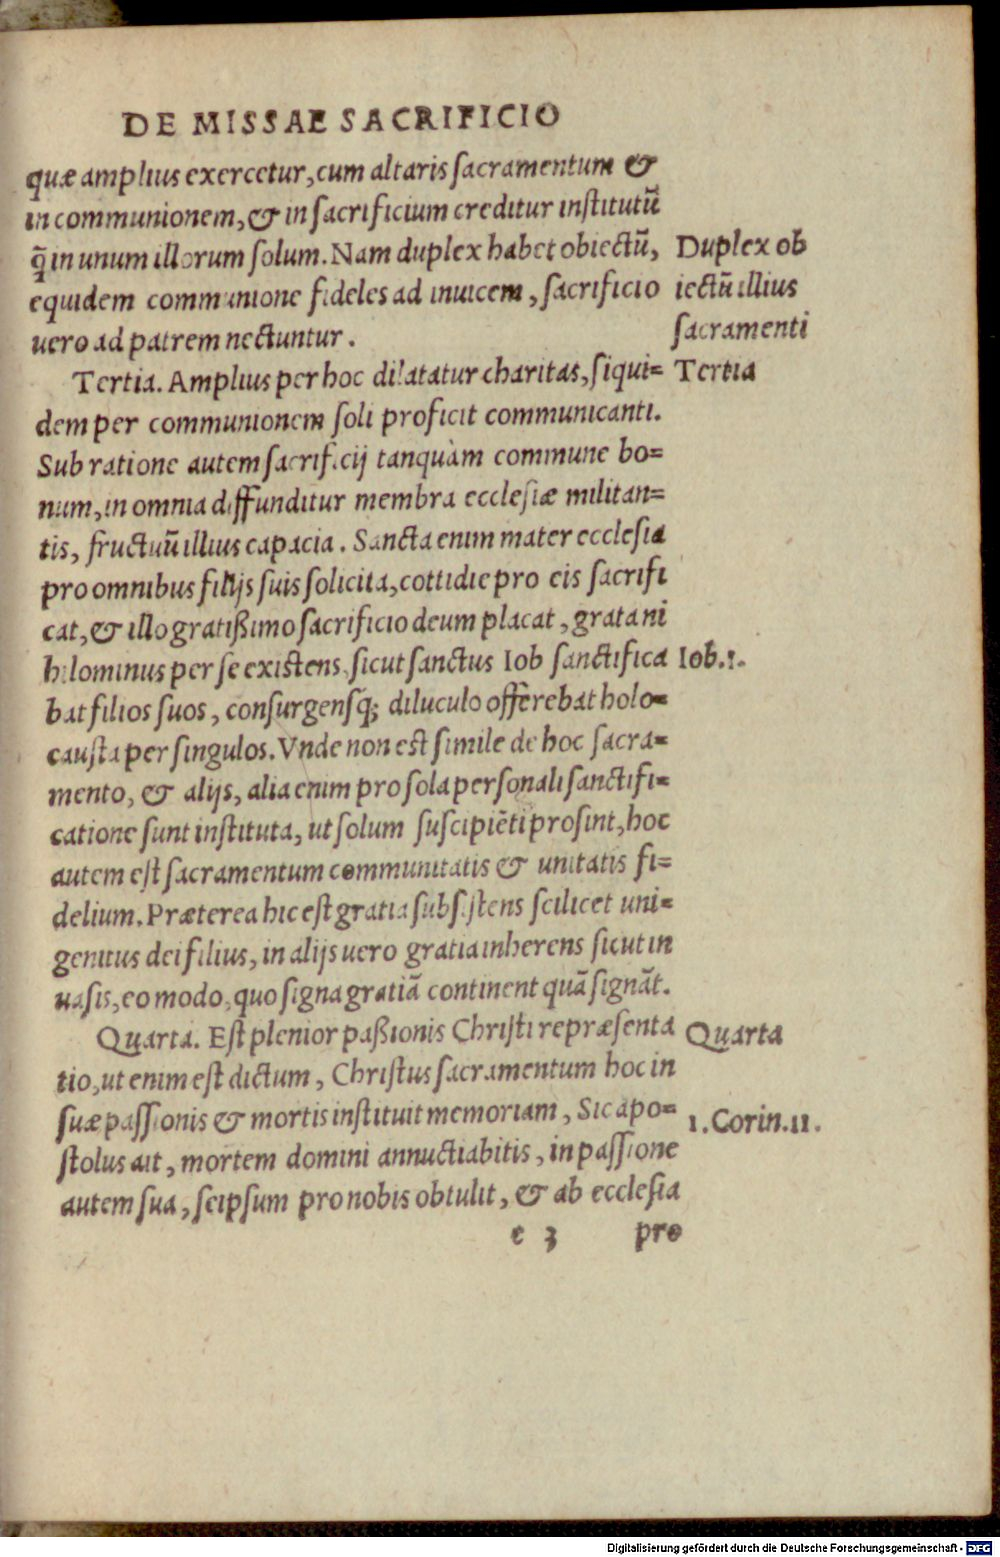 DE MISSAE SACRIFICIO
quæ amplius exercetur, cum altaris ſacramentum &
in communionem, & in ſacrificium creditur inſtitutũ
q̃ in unum illorum ſolum. Nam duplex habet obiectũ,
Duplex ob
equidem communione fideles ad inuicem, ſacrificio
iectũ illius
uero ad patrem nectuntur.
ſacramenti
Tertia. Amplius per hoc dilatatur charitas, ſiqui=
Tertia
dem per communionem ſoli proficit communicanti.
Sub ratione autem ſacrificij tanquàm commune bo=
num, in omnia diffunditur membra eccleſiæ militan=
tis, fructuũ illius capacia. Sancta enim mater eccleſia
pro omnibus filijs ſuis ſolicita, cottidie pro eis ſacrifi
cat, & illo gratißimo ſacrificio deum placat, grata ni
hilominus per ſe exiſtens, ſicut ſanctus Iob ſanctifica
Iob.1.
bat filios ſuos, conſurgensq́; diluculo offerebat holo=
cauſta per ſingulos. Vnde non eſt ſimile de hoc ſacra=
mento, & alijs, alia enim pro ſola perſonali ſanctifi=
catione ſunt inſtituta, ut ſolum ſuſcipiẽti proſint, hoc
autem eſt ſacramentum communitatis & unitatis fi=
delium. Præterea hic eſt gratia ſubſiſtens ſcilicet uni=
genitus dei filius, in alijs uero gratia inherens ſicut in
uaſis, eo modo, quo ſigna gratiã continent quã ſignãt.
Quarta. Eſt plenior paßionis Chriſti repræſenta
Quarta
tio, ut enim eſt dictum, Chriſtus ſacramentum hoc in
ſuæ paſſionis & mortis inſtituit memoriam, Sic apo=
1.Corin.11.
ſtolus ait, mortem domini annuctiabitis, in paſſione
autem ſua, ſeipſum pro nobis obtulit, & ab eccleſia
e 3 pro
Digitalisierung gefördert durch die Deutsche Forschungsgemeinschaft - DFG